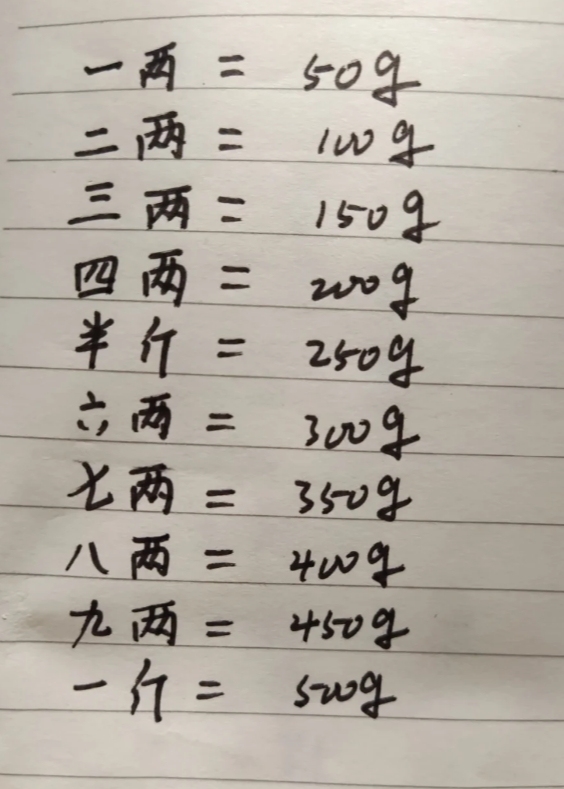 一两 = 50g
二两 = 100g
三两 = 150g
四两 = 200g
半斤 = 250g
六两 = 300g
七两 = 350g
八两 = 400g
九两 = 450g
一斤 = 500g